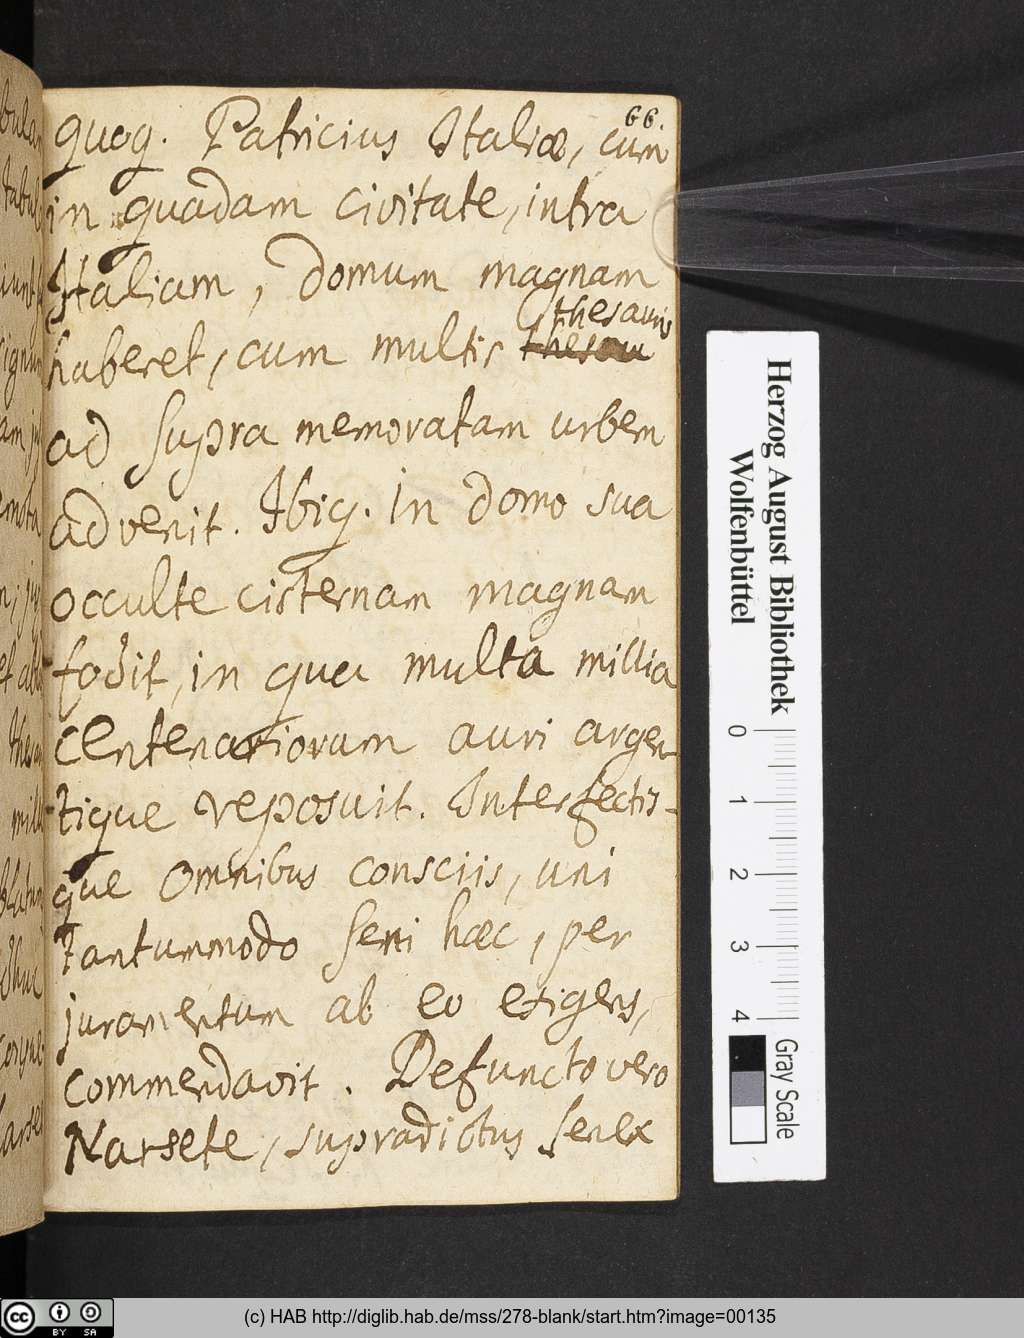 66.
quoq. Patricius Italiæ, cum
in quadam civitate, intra
Italiam, domum magnam
haberet, cum multis thesau thesauris
ad supra memoratam urbem
advenit. Ibiq. in domo sua
occulte cisternam magnam
fodit, in qua multa millia
centenariorum auri argen-
tique reposuit. Interfectis-
que omnibus consciis, uni
tantummodo seni hæc, per
juramentum ab eo exigens,
commendavit. Defuncto vero
Narsete, supradictus senex
Herzog August Bibliothek
Wolfenbüttel
0 1 2 3 4
Gray Scale
cc BY SA
(c) HAB http://diglib.hab.de/mss/278-blank/start.htm?image=00135